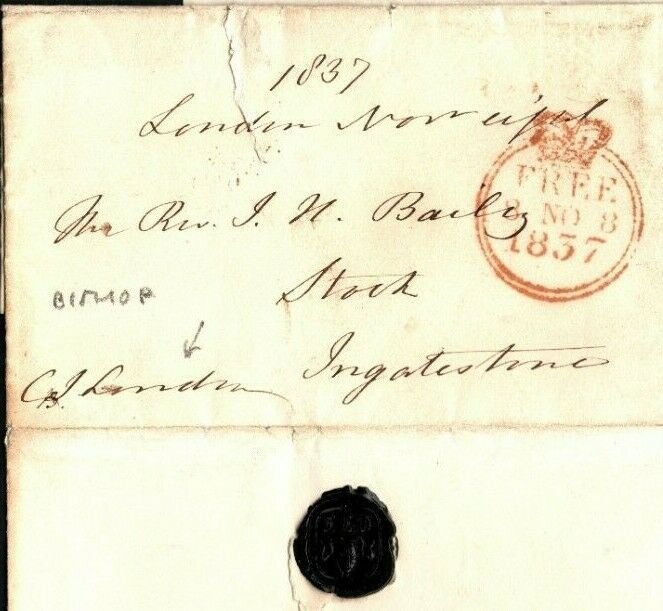 1837
London Novr eight
The Rev. J. H. Bailey
Stock
Ingatestone
C J London
BISHOP
FREE
8 NO 8
1837